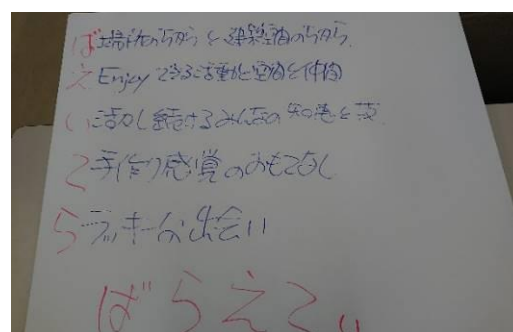 ば 場所のちからと建築物のちから
え Enjoyできる活動と空間と仲間
い 活かし続けるみんなの知恵と技
て 手作り感覚のおもてなし
ら ラッキーな出会い
ばらえてぃ